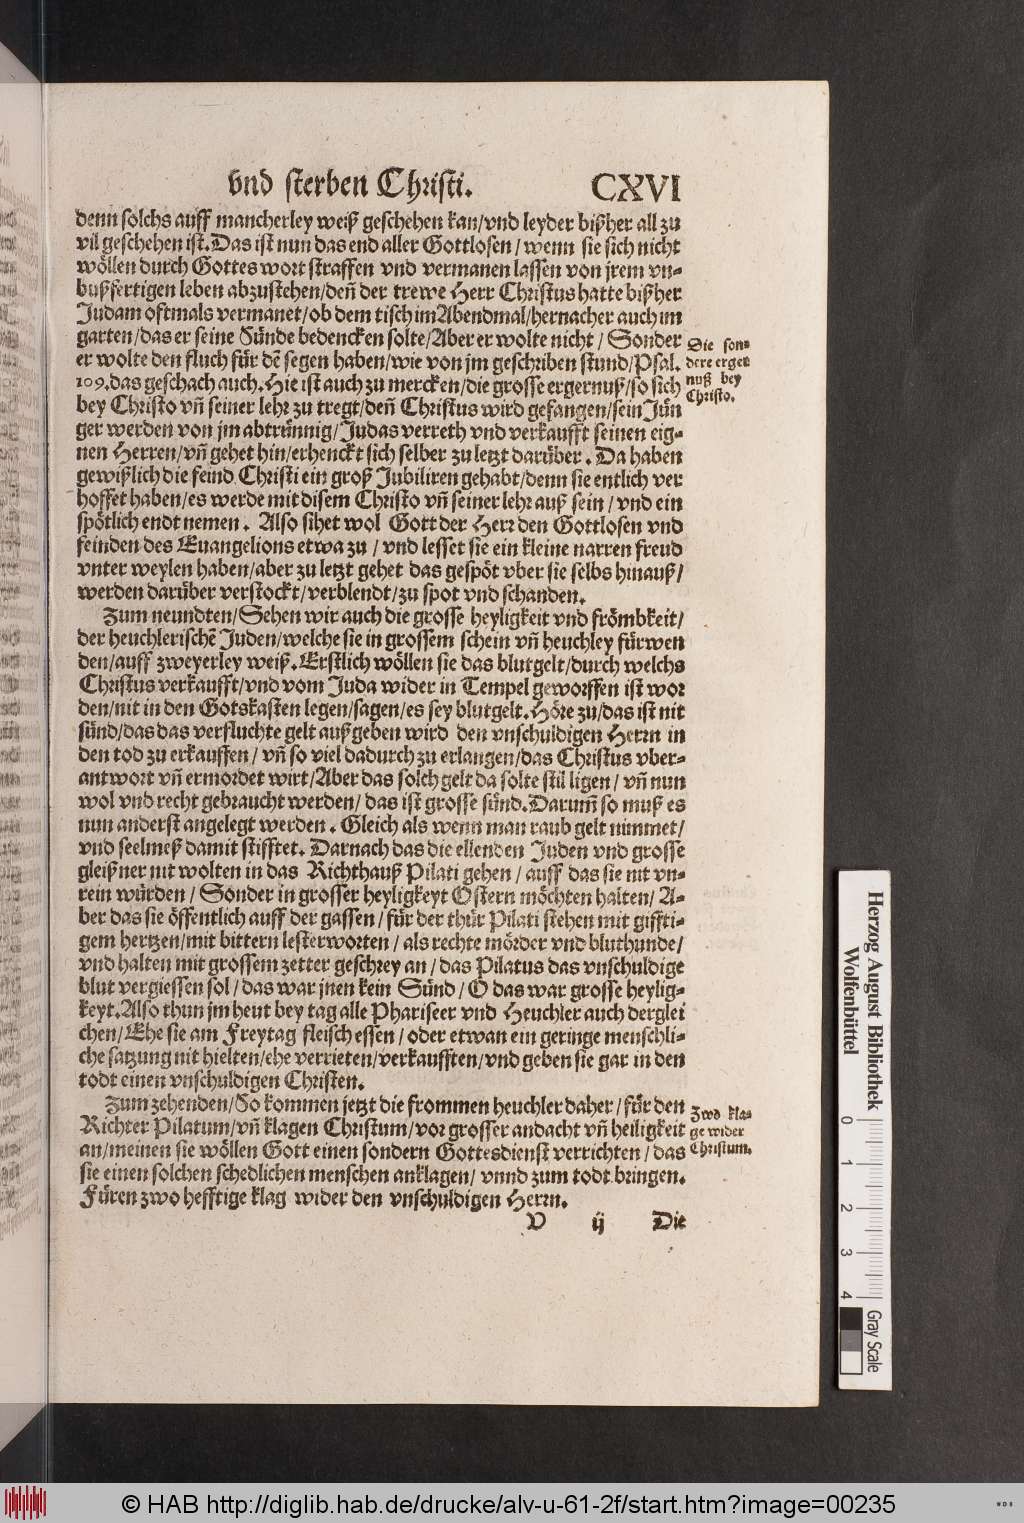 vnd sterben Christi. CXVI
denn solchs auff mancherley weiß geschehen kan/vnd leyder bißher all zu
vil geschehen ist. Das ist nun das end aller Gottlosen/ wenn sie sich nicht
wöllen durch Gottes wort straffen vnd vermanen lassen von jrem vn-
bußfertigen leben abzustehen/deñ der trewe Herr Christus hatte bißher
Judam oftmals vermanet/ob dem tisch im Abendmal/hernacher auch im
garten/das er seine Sünde bedencken solte/Aber er wolte nicht/ Sonder
er wolte den fluch für dē segen haben/wie von jm geschriben stund/Psal.
109.das geschach auch. Hie ist auch zu mercken/die grosse ergernuß/so sich
bey Christo vñ seiner lehr zu tregt/deñ Christus wird gefangen/sein Jün
ger werden von jm abtrünnig/Judas verreth vnd verkaufft seinen eig-
nen Herren/vñ gehet hin/erhenckt sich selber zu letzt darüber. Da haben
gewißlich die feind Christi ein groß Jubiliren gehabt/denn sie entlich ver
hoffet haben/es werde mit disem Christo vñ seiner lehr auß sein/vnd ein
spötlich endt nemen. Also sihet wol Gott der Herr den Gottlosen vnd
feinden des Euangelions etwa zu/ vnd lesset sie ein kleine narren freud
vnter weylen haben/aber zu letzt gehet das gespöt vber sie selbs hinauß/
werden darüber verstockt/verblendt/zu spot vnd schanden.
Die son-
dere erger
nuß bey
Christo.
Zum neundten/Sehen wir auch die grosse heyligkeit vnd frömbkeit/
der heuchlerischē Juden/welche sie in grossem schein vñ heuchley fürwen
den/auff zweyerley weiß. Erstlich wöllen sie das blutgelt/durch welchs
Christus verkaufft/vnd vom Juda wider in Tempel geworffen ist wor
den/nit in den Gotskasten legen/sagen/es sey blutgelt. Höre zu/das ist nit
sünd/das das verfluchte gelt außgeben wird den vnschuldigen Herrn in
den tod zu erkauffen/ vñ so viel dadurch zu erlangen/das Christus vber-
antwort vñ ermordet wirt/Aber das solch gelt da solte stil ligen/ vñ nun
wol vnd recht gebraucht werden/ das ist grosse sünd. Darum̃ so muß es
nun anderst angelegt werden. Gleich als wenn man raub gelt nimmet/
vnd seelmeß damit stifftet. Darnach das die ellenden Juden vnd grosse
gleißner nit wolten in das Richthauß Pilati gehen/ auff das sie nit vn-
rein würden/ Sonder in grosser heyligkeyt Ostern möchten halten/ A-
ber das sie öffentlich auff der gassen/ für der thür Pilati stehen mit giffti-
gem hertzen/mit bittern lesterworten/ als rechte mörder vnd bluthunde/
vnd halten mit grossem zetter geschrey an/ das Pilatus das vnschuldige
blut vergiessen sol/ das war jnen kein Sünd/ O das war grosse heylig-
keyt. Also thun jm heut bey tag alle Phariseer vnd Heuchler auch derglei
chen/ Ehe sie am Freytag fleisch essen/ oder etwan ein geringe menschli-
che satzung nit hielten/ehe verrieten/verkaufften/vnd geben sie gar in den
todt einen vnschuldigen Christen.
Zum zehenden/So kommen jetzt die frommen heuchler daher/ für den
Richter Pilatum/vñ klagen Christum/vor grosser andacht vñ heiligkeit
an/meinen sie wöllen Gott einen sondern Gottesdienst verrichten/ das
sie einen solchen schedlichen menschen anklagen/ vnnd zum todt bringen.
Füren zwo hefftige klag wider den vnschuldigen Herrn.
Zwo kla-
ge wider
Christum.
V ij Die
Herzog August Bibliothek
Wolfenbüttel
0 1 2 3 4
Gray Scale
© HAB http://diglib.hab.de/drucke/alv-u-61-2f/start.htm?image=00235